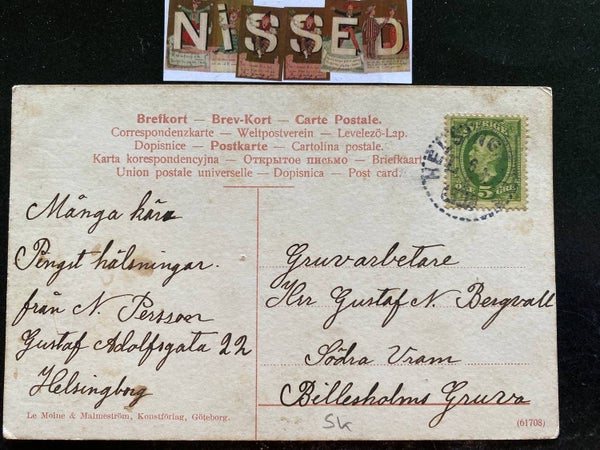 NiSSED
Brefkort — Brev-Kort — Carte Postale.
Correspondenzkarte — Weltpostverein — Levelezö-Lap.
Dopisnice — Postkarte — Cartolina postale.
Karta korespondencyjna — Открытое письмо — Briefkaart
Union postale universelle — Dopisnica — Post card.
SVERIGE
5 ÖRE
HELSING
Många kära
Pengst hälsningar.
från N. Persson
Gustaf Adolfsgata 22
Helsingborg
Gruvarbetare
Hrr Gustaf N. Bergvall
Södra Vram
Billesholms Gruva
Le Moine & Malmeström, Konstförlag, Göteborg.
Sk
(61708)